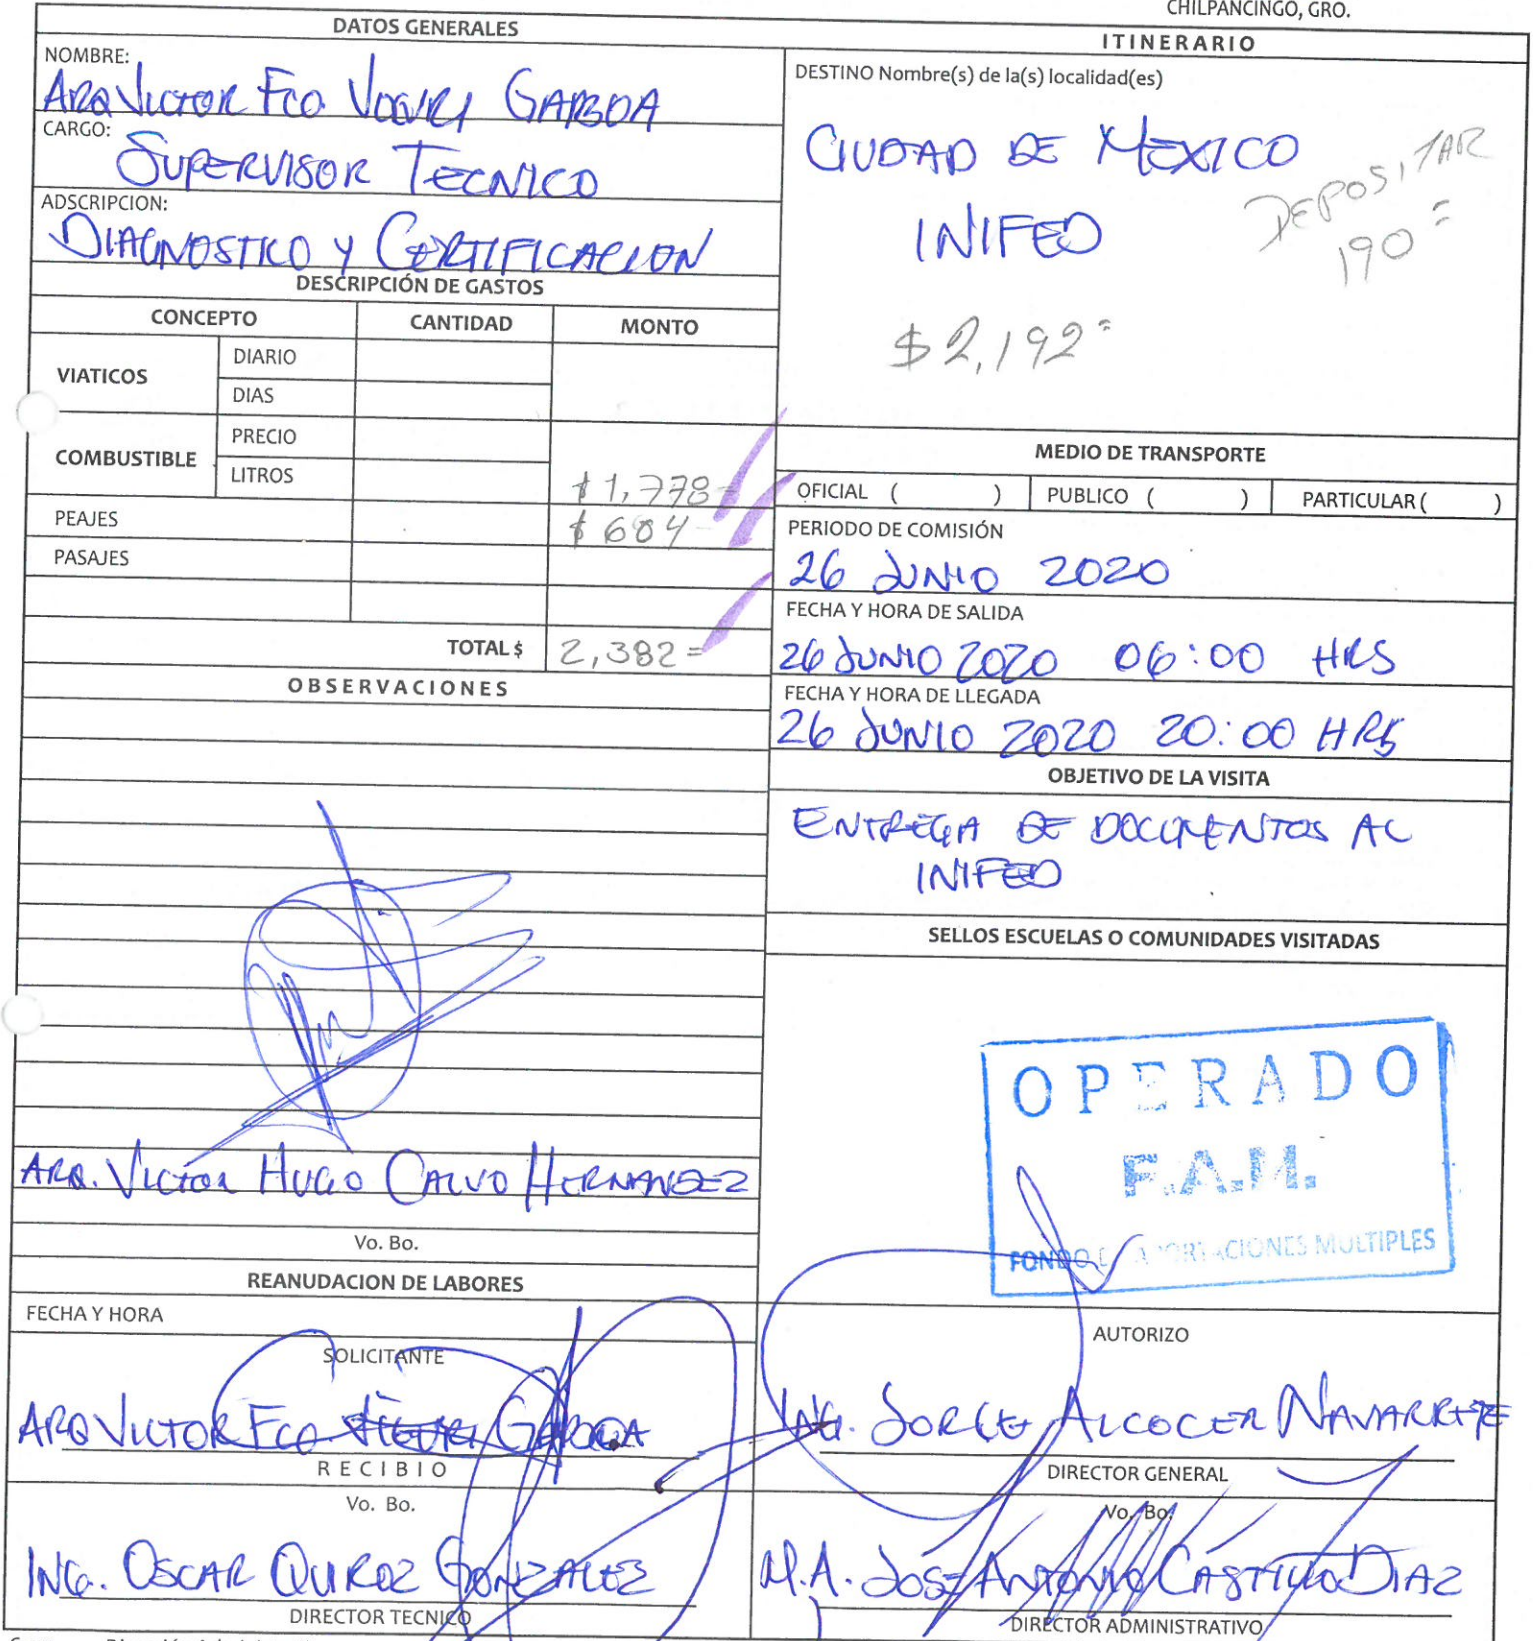 CHILPANCINGO, GRO.
DATOS GENERALES
NOMBRE:
ARQ VICTOR FCO GAMBOA
CARGO:
SUPERVISOR TECNICO
ADSCRIPCION:
DIAGNOSTICO Y CERTIFICACION
DESCRIPCIÓN DE GASTOS
CONCEPTO CANTIDAD MONTO
VIATICOS
DIARIO
DIAS
COMBUSTIBLE
PRECIO
LITROS
$ 1,778=
PEAJES
$ 604
PASAJES
TOTAL $ 2,382=
OBSERVACIONES
ARQ. VICTOR HUGO CALVO HERNANDEZ
Vo. Bo.
REANUDACION DE LABORES
FECHA Y HORA
SOLICITANTE
ARQ VICTOR FCO GAMBOA
RECIBIO
Vo. Bo.
ING. OSCAR QUIROZ GONZALEZ
DIRECTOR TECNICO
ITINERARIO
DESTINO Nombre(s) de la(s) localidad(es)
CIUDAD DE MEXICO
INIFED
DEPOSITAR
190=
$2,192=
MEDIO DE TRANSPORTE
OFICIAL ( ) PUBLICO ( ) PARTICULAR ( )
PERIODO DE COMISIÓN
26 JUNIO 2020
FECHA Y HORA DE SALIDA
26 JUNIO 2020 06:00 HRS
FECHA Y HORA DE LLEGADA
26 JUNIO 2020 20:00 HRS
OBJETIVO DE LA VISITA
ENTREGA DE DOCUMENTOS AL
INIFED
SELLOS ESCUELAS O COMUNIDADES VISITADAS
OPERADO
F.A.M.
FONDO DE APORTACIONES MULTIPLES
AUTORIZO
ING. JORGE ALCOCER NAVARRETE
DIRECTOR GENERAL
Vo. Bo.
M.A. JOSE ANTONIO CASTILLO DIAZ
DIRECTOR ADMINISTRATIVO